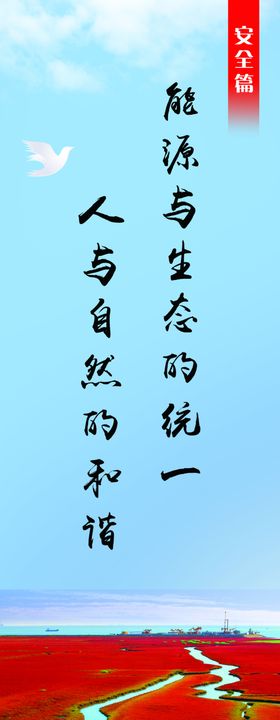 安全篇
能源与生态的统一
人与自然的和谐